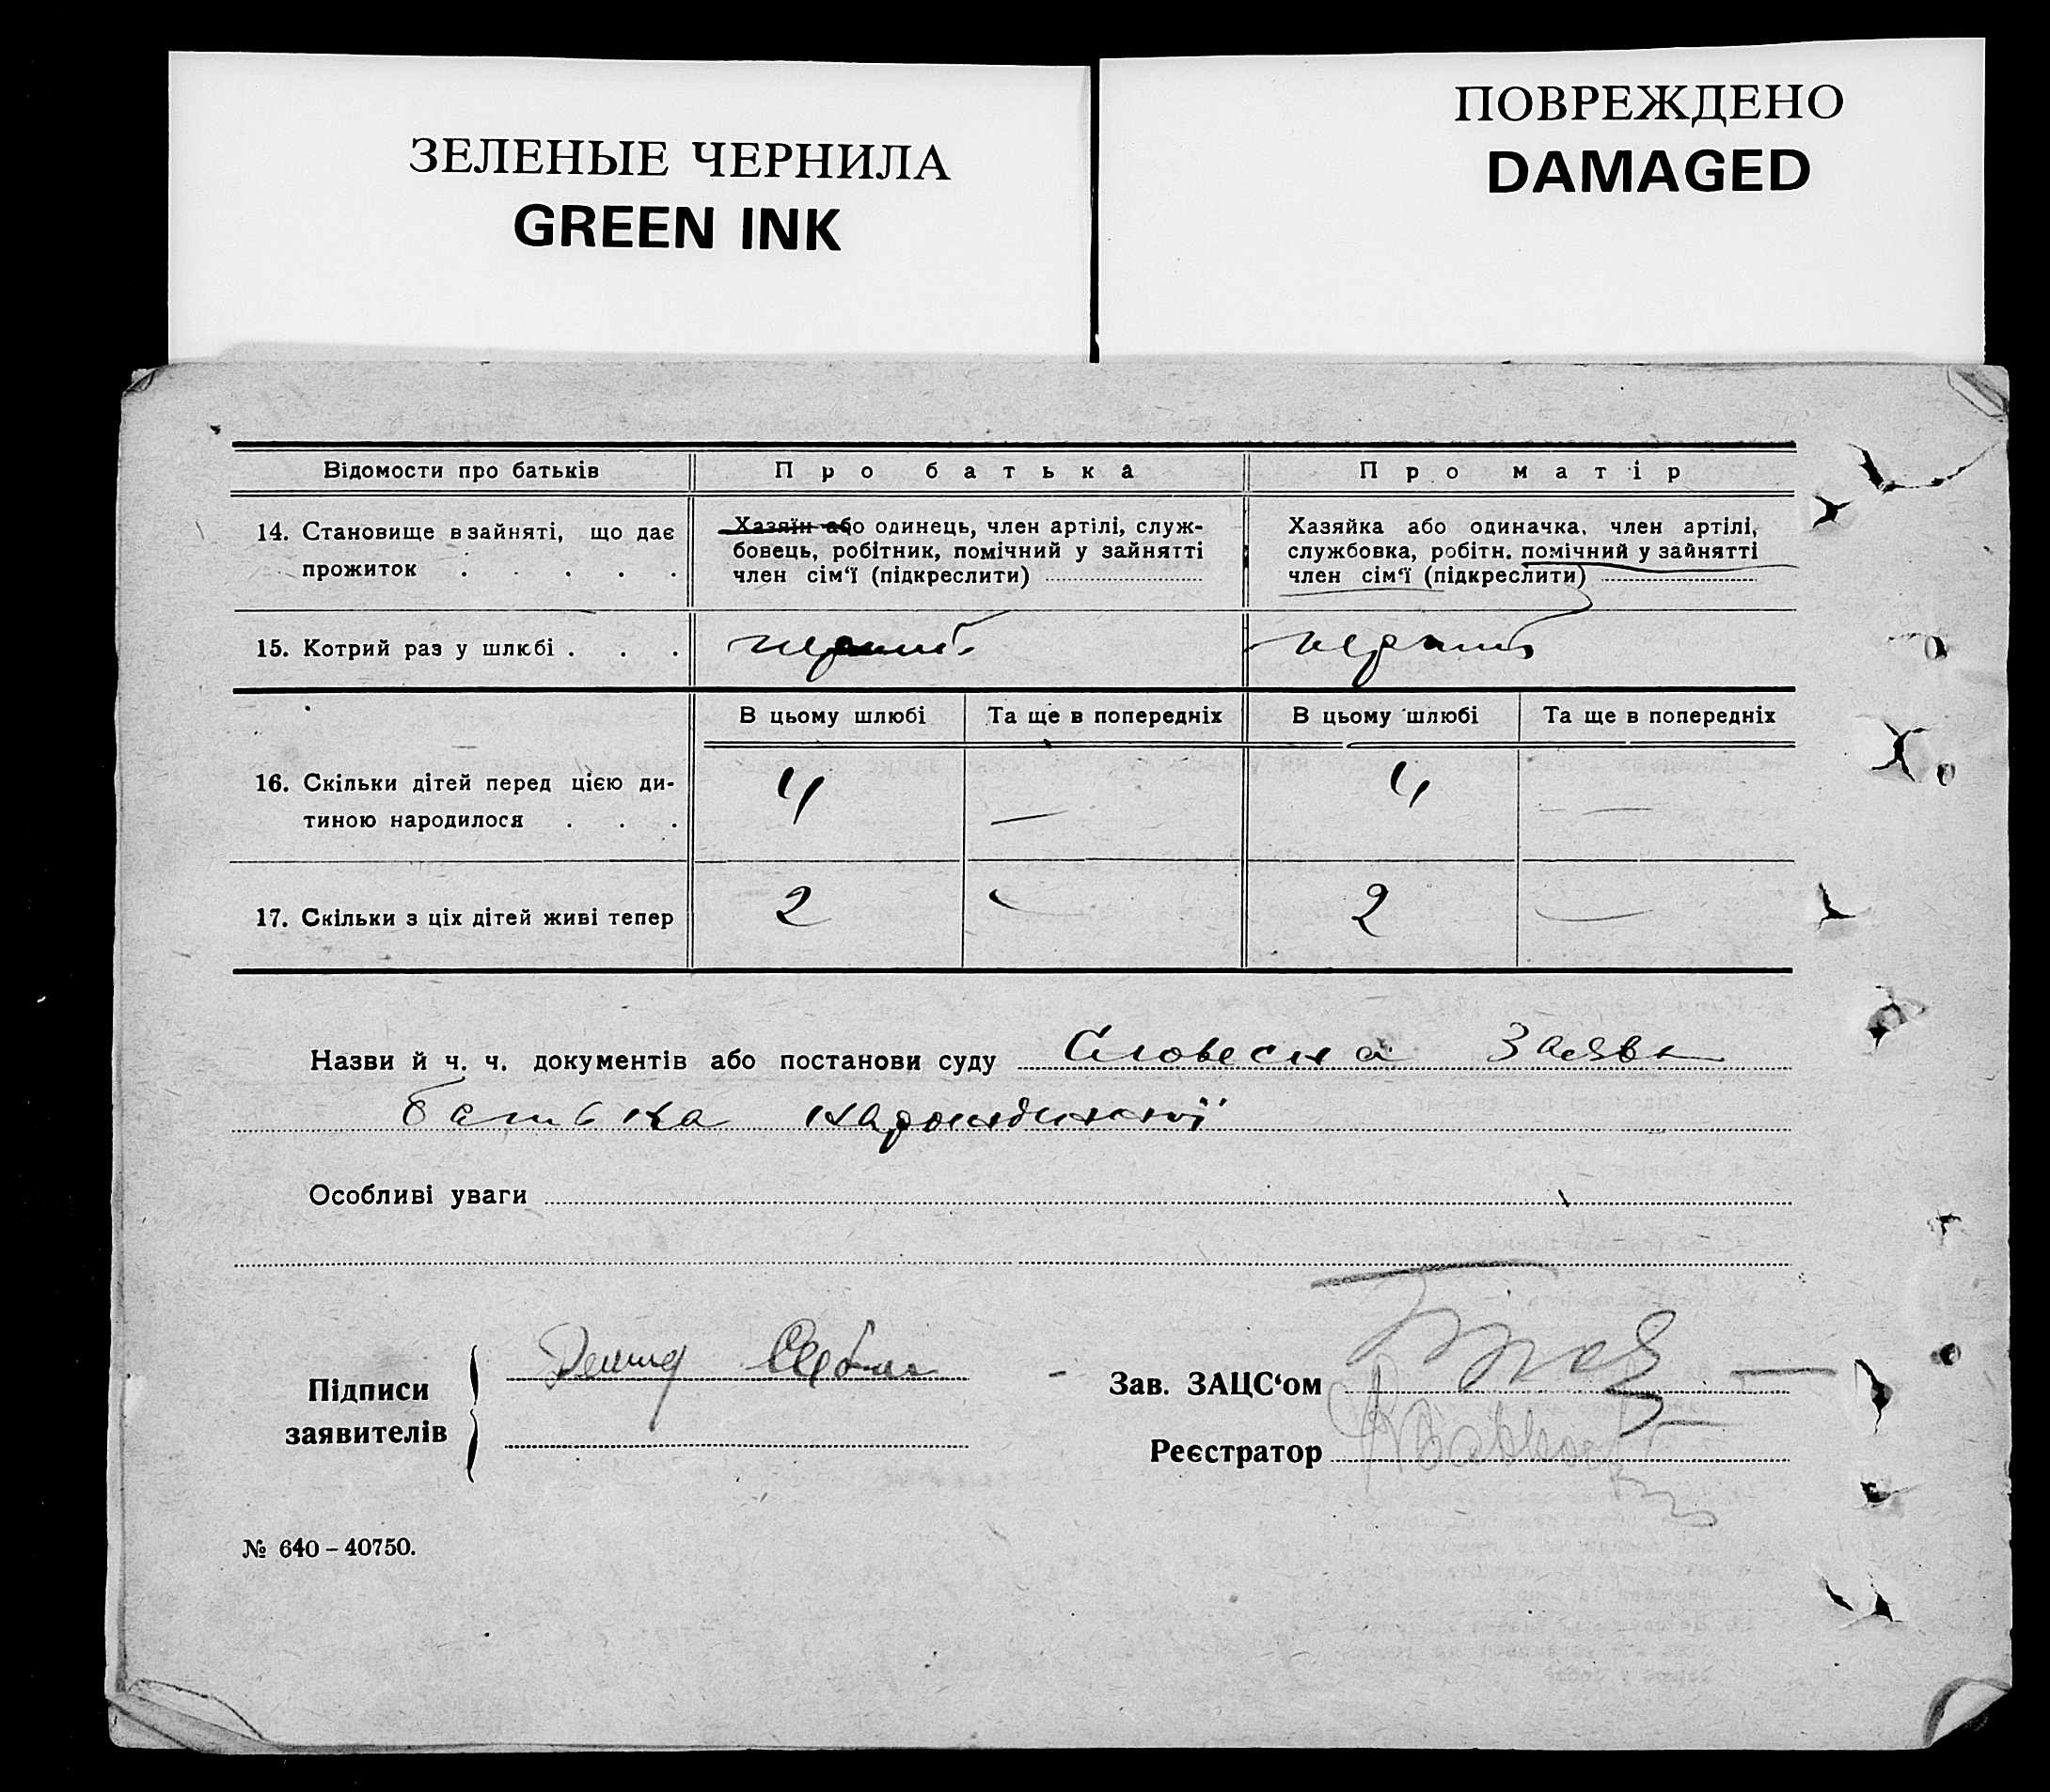 ЗЕЛЕНЫЕ ЧЕРНИЛА
GREEN INK
ПОВРЕЖДЕНО
DAMAGED
Відомости про батьків
Про батька
Про матір
14. Становище в зайняті, що дає
прожиток . . . . .
Хазяїн або одинець, член артілі, служ-
бовець, робітник, помічний у зайнятті
член сім‘ї (підкреслити)
Хазяйка або одиначка, член артілі,
службовка, робітн. помічний у зайнятті
член сім‘ї (підкреслити)
15. Котрий раз у шлюбі . . .
перший
перший
В цьому шлюбі
Та ще в попередніх
В цьому шлюбі
Та ще в попередніх
16. Скільки дітей перед цією ди-
тиною народилося . . .
4
—
4
—
17. Скільки з ціх дітей живі тепер
2
—
2
—
Назви й ч. ч. документів або постанови суду Словесна заява
батька
Особливі уваги
Підписи
заявителів
Зав. ЗАЦС‘ом
Реєстратор
№ 640 – 40750.